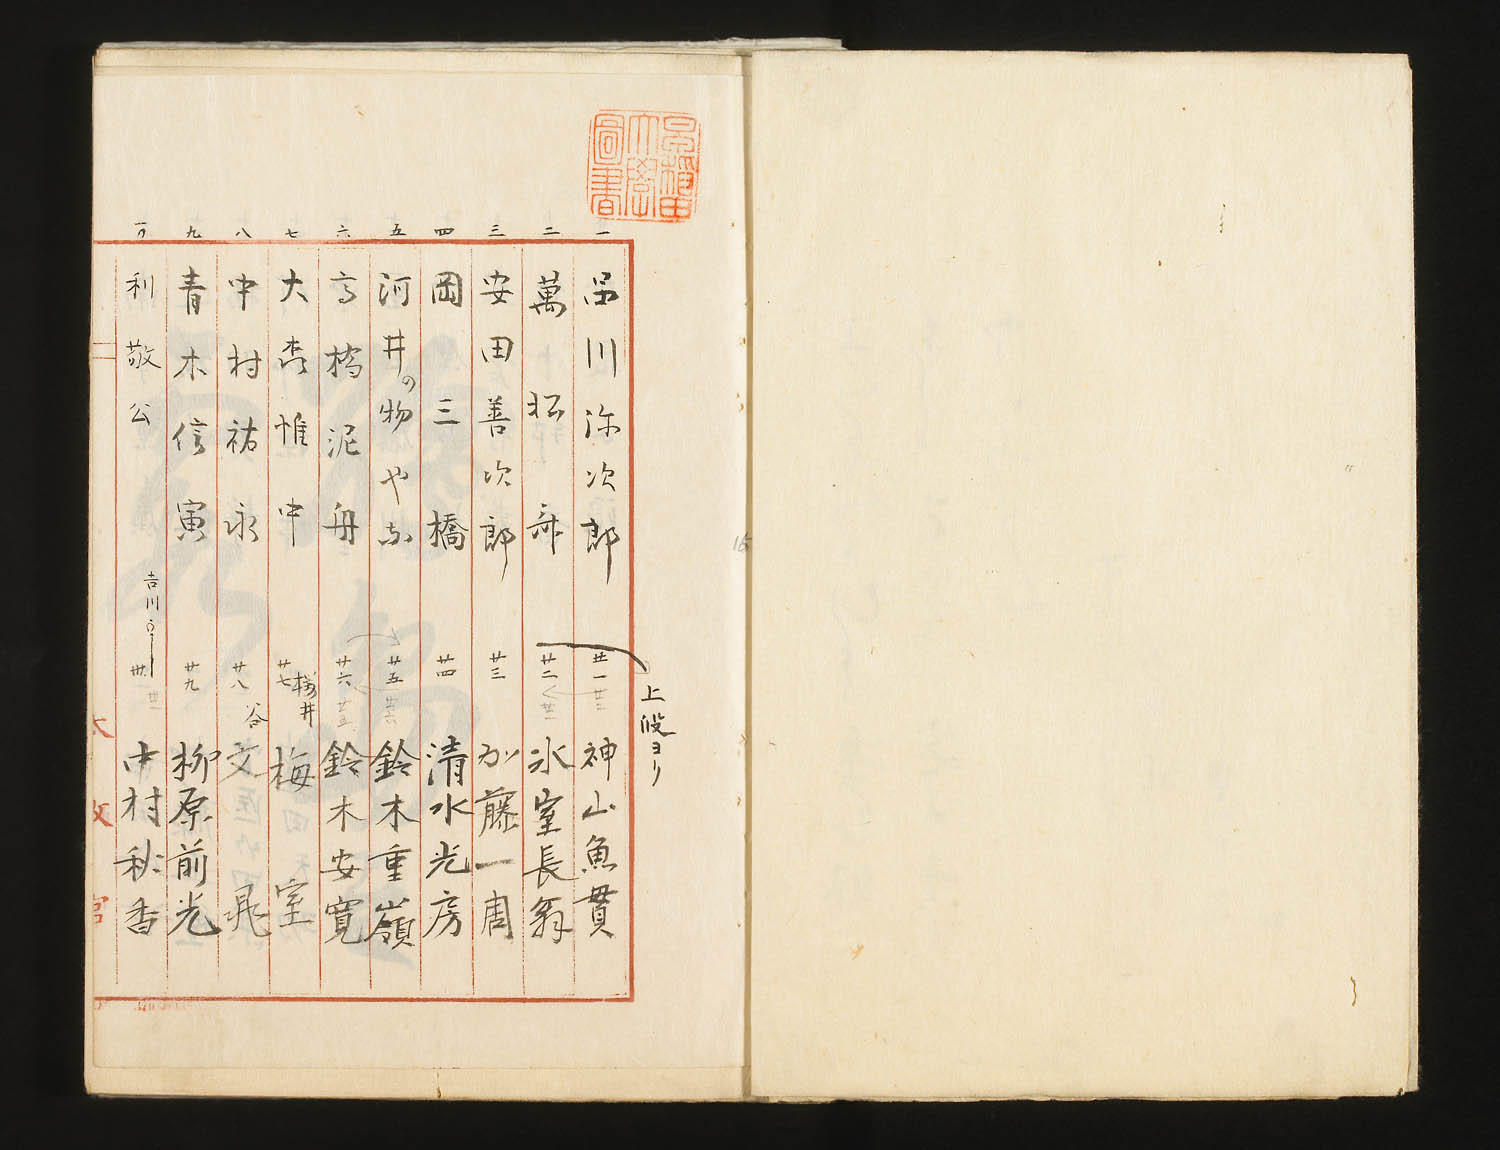 早稲田大學圖書
一 品川弥次郎
二 萬松
三 安田善次郎
四 岡三橋
五 河井の物やな
六 高橋泥舟
七 大森惟中
八 中村祐永
九 青木信寅
利敬公
吉川
上段ヨリ
廿一 神山魚貫
廿二 氷室長翁
廿三 加藤一周
廿四 清水光房
廿五 鈴木重嶺
廿六 鈴木安寛
廿七 桜井梅室
廿八 谷文晁
廿九 柳原前光
卅 中村秋香
大政官
15